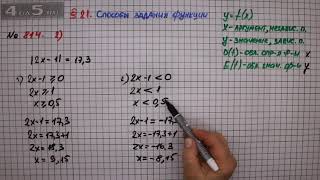 4 ОТ 5
§ 21. Способы задания функции
№ 814. 2)
|2x - 1| = 17,3
1) 2x-1 ≥ 0
2x ≥ 1
x ≥ 0,5
2x-1 = 17,3
2x = 17,3+1
2x = 18,3
x = 9,15
2) 2x-1 < 0
2x < 1
x < 0,5
2x-1 = -17,3
2x = -17,3+1
2x = -16,3
x = -8,15
y = f(x)
x - аргумент, независ. п.
y - значение, завис. п.